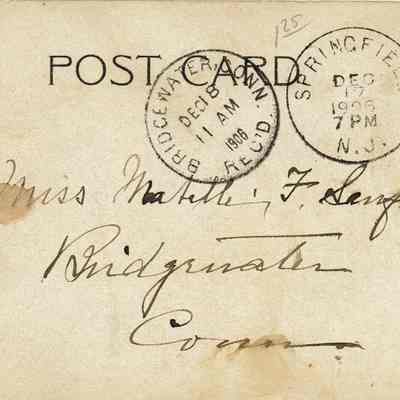 125
POST CARD
BRIDGEWATER, CONN.
DEC 18
11 AM
1906
REC'D.
SPRINGFIEL
DEC
17
1906
7 PM
N.J.
Miss F.
Bridgewater
Conn